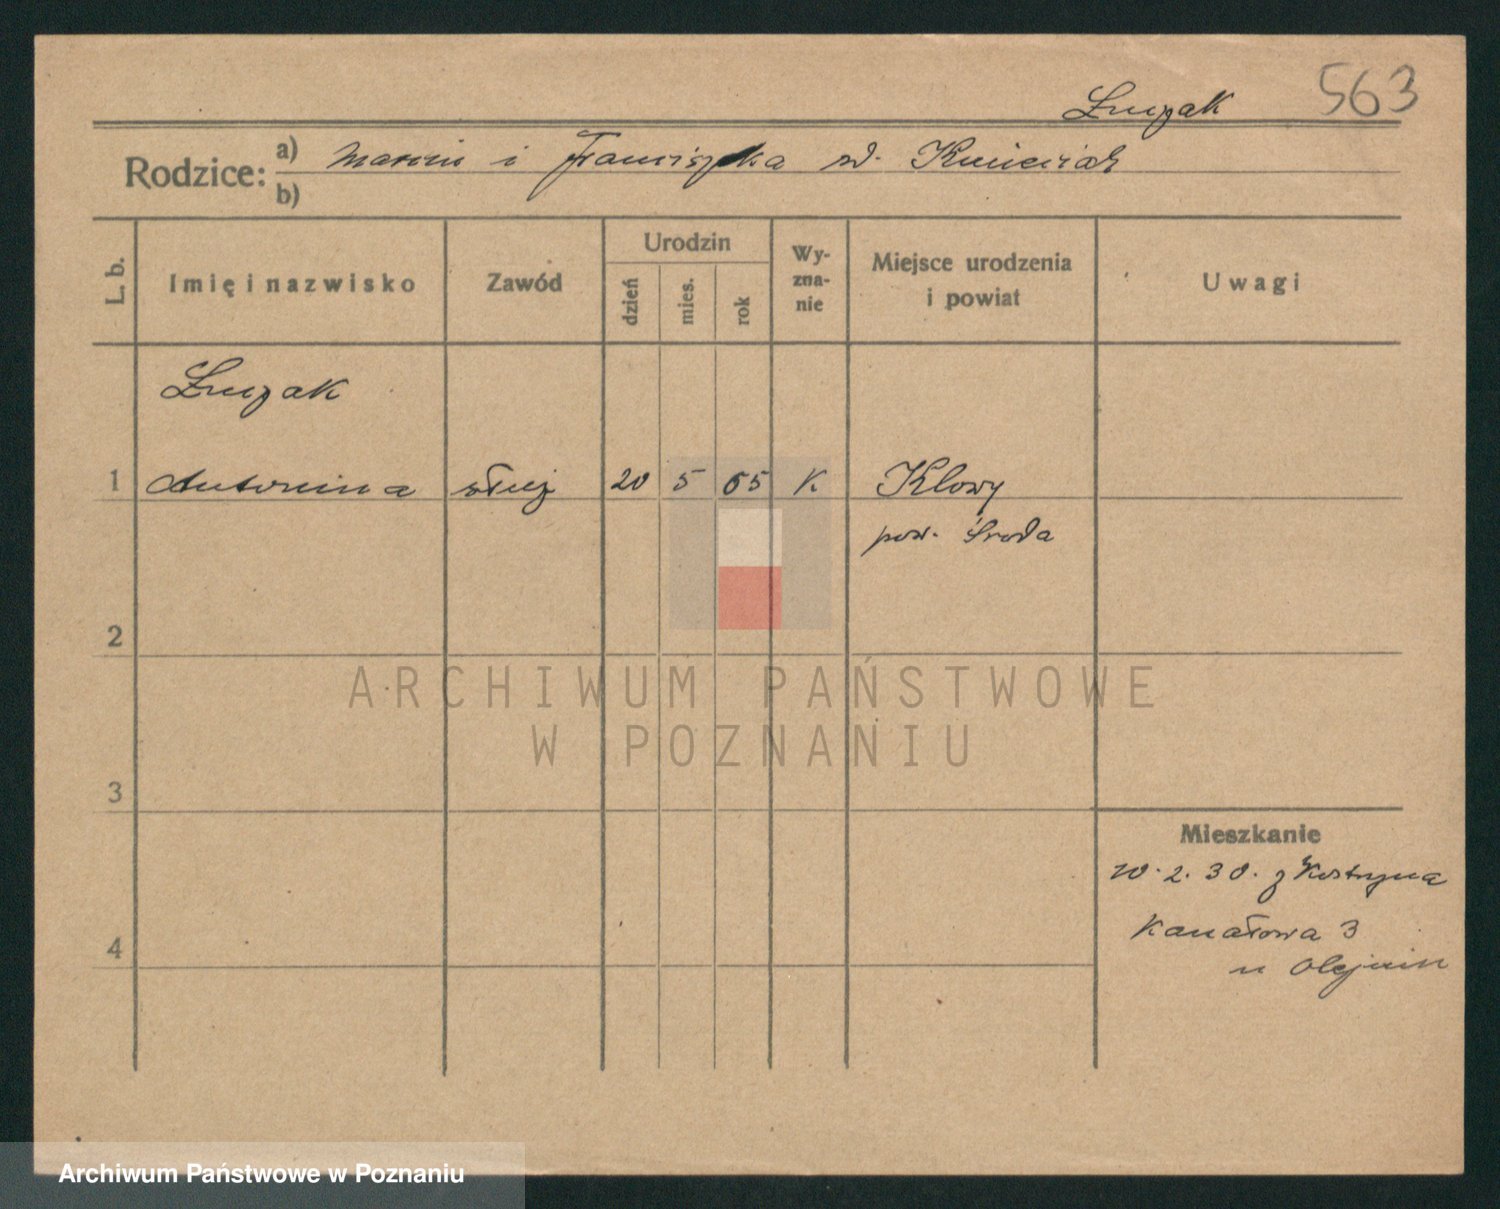 563
Łuczak
Rodzice: a) Marcin i Franciszka zd.
b)
L. b.
Imię i nazwisko
Zawód
Urodzin
dzień
mies.
rok
Wy-
zna-
nie
Miejsce urodzenia
i powiat
Uwagi
Łuczak
1 Antonina służ 20 5 65 K Klony
pow. Środa
2
3
4
Mieszkanie
10.2.30. z Kostrzyna
Kanałowa 3
u Olejnik
ARCHIWUM PAŃSTWOWE
W POZNANIU
Archiwum Państwowe w Poznaniu